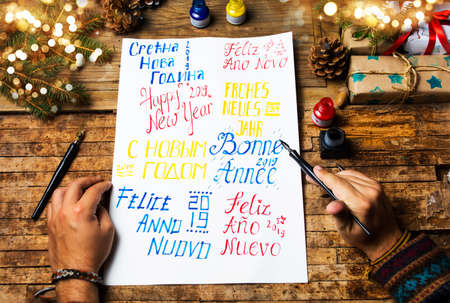 Срећна
Нова 2019
Година
Feliz 2019
Ano Novo
Happy 2019
New Year
FROHES
NEUES 2019
JAHR
С НОВЫМ
2019 ГОДОМ
Bonne
2019
Année
FELICE 2019
ANNO
NUOVO
Feliz
Año 2019
Nuevo